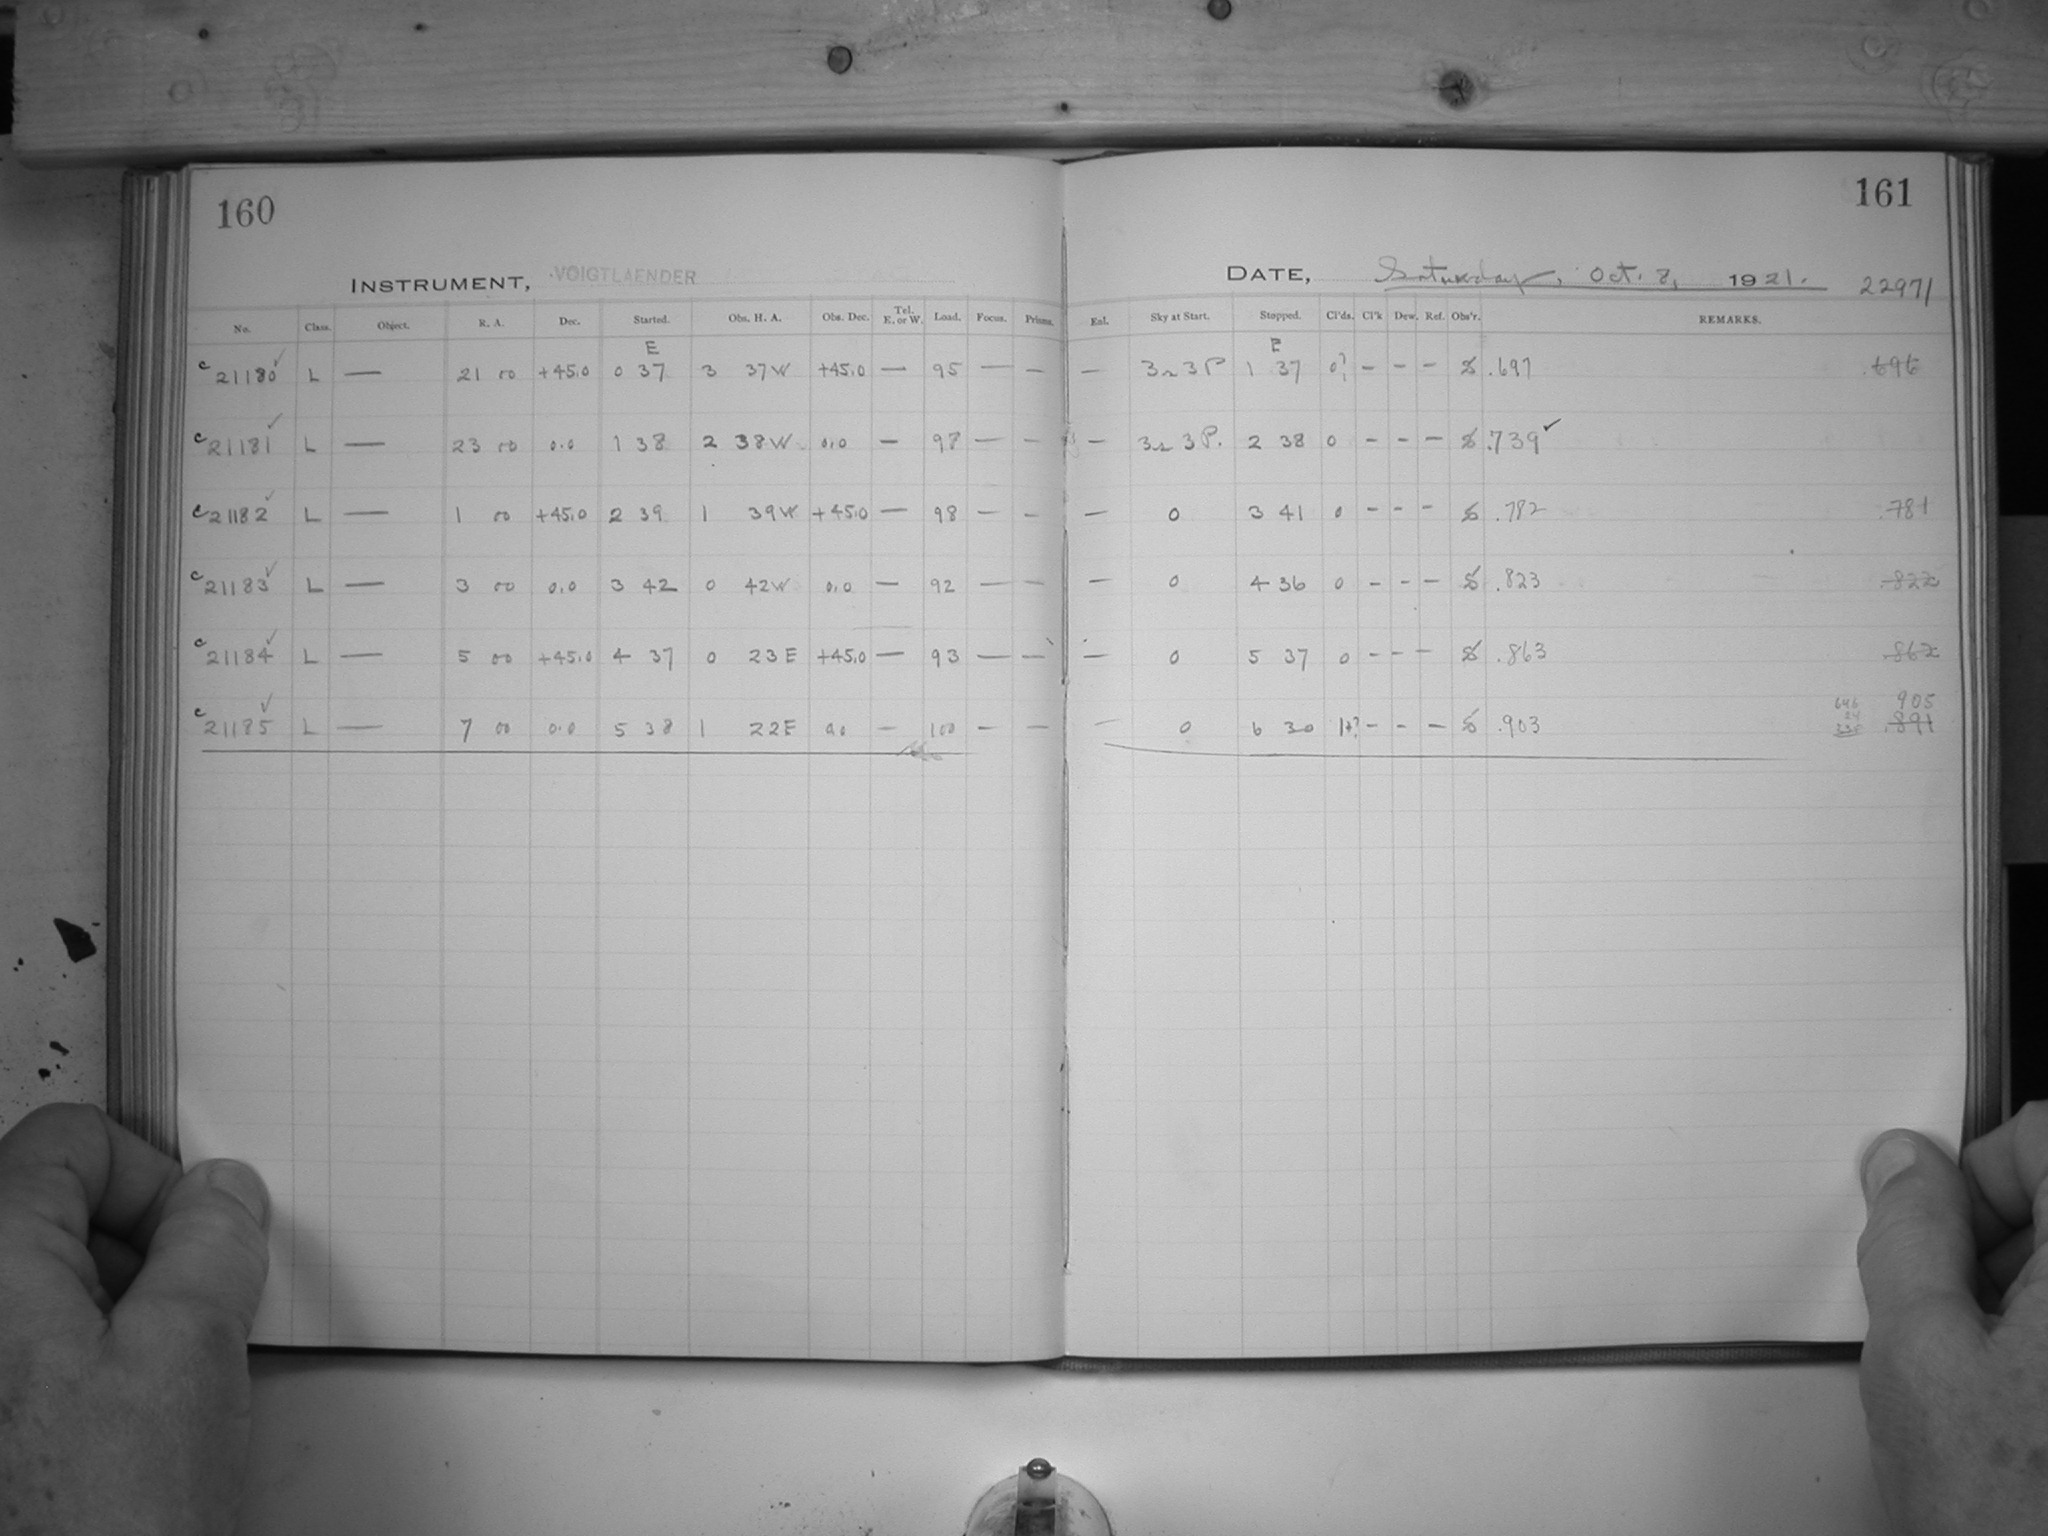 160
161
INSTRUMENT, VOIGTLAENDER
DATE, Saturday, Oct. 8, 1921. 22971
No. Class. Object. R. A. Dec. Started. Obs. H. A. Obs. Dec. Tel. E. or W. Load. Focus. Prisms. Enl. Sky at Start. Stopped. Cl'ds. Cl'k Dew. Ref. Obs'r. REMARKS.
E E
c 21180 ✓ L — 21 00 +45.0 0 37 3 37W +45.0 — 95 — — — 3n3P 1 37 0? - - - S .697 .696
c 21181 ✓ L — 23 00 0.0 1 38 2 38W 0.0 — 97 — — — 3n3P. 2 38 0 - - - S .739 ✓
c 21182 ✓ L — 1 00 +45.0 2 39 1 39W +45.0 — 98 — — — 0 3 41 0 - - - S .782 .781
c 21183 ✓ L — 3 00 0.0 3 42 0 42W 0.0 — 92 — — — 0 4 36 0 - - - S .823 .822
c 21184 ✓ L — 5 00 +45.0 4 37 0 23E +45.0 — 93 — — — 0 5 37 0 - - - S .863 .862
905
c 21185 ✓ L — 7 00 0.0 5 38 1 22E 0.0 — 100 — — — 0 6 30 1+? - - - S .903 .891